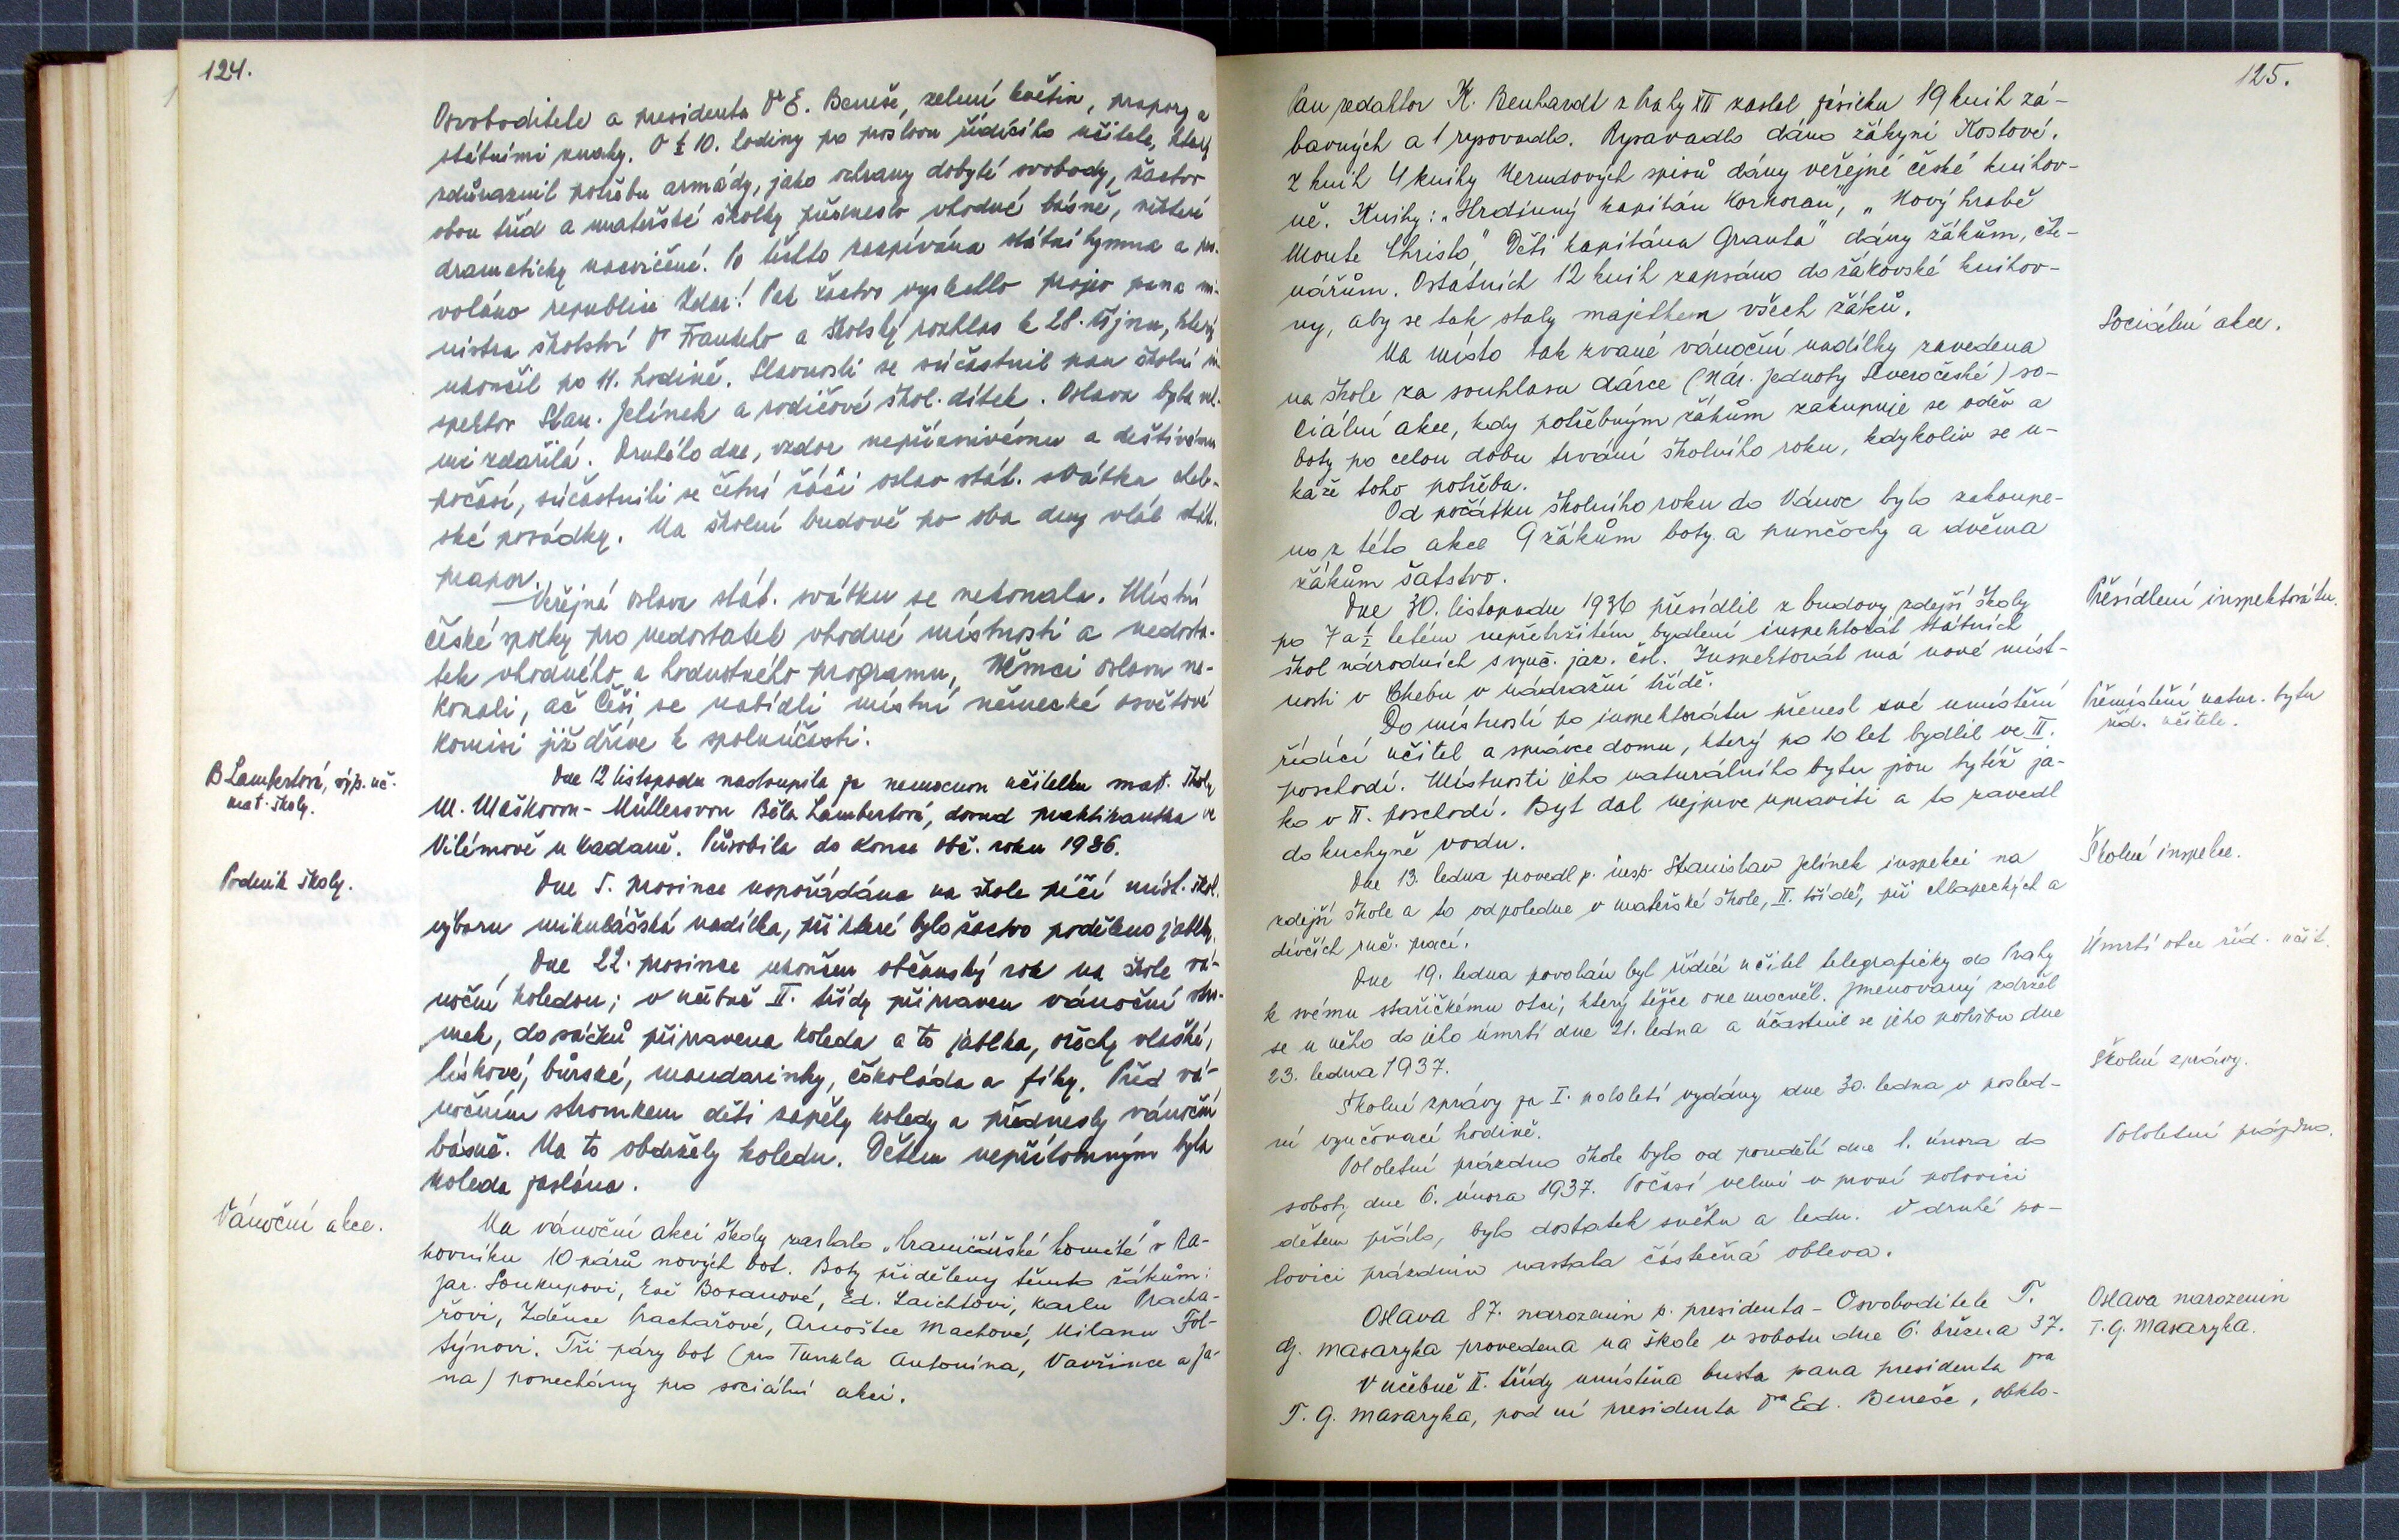 124.
Osvoboditele a presidenta Dr E. Beneše, zelení květin, prapory a
státními znaky. O ½ 10. hodiny po proslovu řídícího učitele, který
zdůraznil potřebu armády, jako ochrany dobyté svobody, žactvo
obou tříd a mateřské školky předneslo vhodné básně, některé
dramaticky nacvičené. Po těchto zazpívána státní hymna a pro-
voláno republice Zdar! Pak žactvo vyslechlo projev pana mi-
nistra školství Dr Frankeho a školský rozhlas k 28. říjnu, který
ukončil po 11. hodině. Slavnosti se súčastnil pan školní in-
spektor Stan. Jelínek a rodičové škol. dítek. Oslava byla vel-
mi zdařilá. Druhého dne, vzdor nepříznivému a deštivému
počasí, súčastnili se četní žáci oslav stát. svátku cheb-
ské posádky. Na školní budově po oba dny vlál stát.
prapor.
Veřejná oslava stát. svátku se nekonala. Místní
české spolky pro nedostatek vhodné místnosti a nedosta-
tek vhodného a hodnotného programu, Němci oslavu ne-
konali, ač Češi se nabídli místní německé osvětové
komisi již dříve k spoluúčasti.
B Lambertová, výp. uč.
mat. školy.
Dne 12 listopadu nastoupila za nemocnou učitelku mat. školy
M. Maškovou-Müllerovou Běla Lambertová, dosud praktikantka ve
Vilémově u Kadaně. Působila do konce obč. roku 1936.
Podnik školy.
Dne 5. prosince uspořádána na škole péčí míst. škol.
výboru mikulášská nadílka, při které bylo žactvo poděleno jablky.
Dne 22. prosince ukončen občanský rok na škole vá-
noční koledou; v učebně II. třídy připraven vánoční stro-
mek, do sáčků připravena koleda a to jablka, ořechy vlašské,
lískové, búrské, mandarinky, čokoláda a fíky. Před vá-
nočním stromkem děti zapěly koledy a přednesly vánoční
básně. Na to obdržely koledu. Dětem nepřítomným byla
koleda zaslána.
Vánoční akce.
Na vánoční akci školy zaslalo „Hraničářské komité" v Ra-
kovníku 10 párů nových bot. Boty přiděleny těmto žákům:
Jar. Soukupovi, Evě Bosanové, Ed. Laichtovi, Karlu Pracha-
řovi, Zdence Prachařové, Arnoštce Machové, Milanu Fol-
týnovi. Tři páry bot (pro Tunkla Antonína, Vavřince a Ja-
na) ponechány pro sociální akci.
125.
Pan redaktor K. Benhardt z Prahy XII zaslal ježíšku 19 knih zá-
bavných a 1 rysovadlo. Rysovadlo dáno žákyni Kostové.
Z knih 4 knihy Nerudových spisů dány veřejné české knihov-
ně. Knihy: „Hrdinný kapitán Korkoran", „Nový hrabě
Monte Christo", „Děti kapitána Granta" dány žákům, čte-
nářům. Ostatních 12 knih zapsáno do žákovské knihov-
ny, aby se tak staly majetkem všech žáků.
Sociální akce.
Na místo tak zvané vánoční nadílky zavedena
na škole za souhlasu dárce (Nár. Jednoty Severočeské) so-
ciální akce, kdy potřebným žákům zakupuje se oděv a
boty po celou dobu trvání školního roku, kdykoliv se u-
káže toho potřeba.
Od počátku školního roku do Vánoc bylo zakoupe-
no z této akce 9 žákům boty a punčochy a dvěma
žákům šatstvo.
Přesídlení inspektorátu.
Dne 30. listopadu 1936 přesídlil z budovy zdejší školy
po 7 a ½ letém nepřetržitém bydlení inspektorát státních
škol národních s vyuč. jaz. čsl. Inspektorát má nové míst-
nosti v Chebu v nádražní třídě.
Přemístění natur. bytu
říd. učitele.
Do místností po inspektorátu přenesl své umístění
řídící učitel a správce domu, který po 10 let bydlil ve II.
poschodí. Místnosti jeho naturálního bytu jsou tytéž ja-
ko v II. poschodí. Byt dal nejprve upraviti a to zavedl
do kuchyně vodu.
Školní inspekce.
Dne 13. ledna provedl p. insp. Stanislav Jelínek inspekci na
zdejší škole a to odpoledne v mateřské škole, II. třídě, při chlapeckých a
dívčích ruč. prací.
Úmrtí otce říd. učit.
Dne 19. ledna povolán byl řídící učitel telegraficky do Prahy
k svému stařičkému otci, který těžce onemocněl. Jmenovaný zdržel
se u něho do jeho úmrtí dne 21. ledna a účastnil se jeho pohřbu dne
23. ledna 1937.
Školní zprávy.
Školní zprávy za I. pololetí vydány dne 30. ledna v posled-
ní vyučovací hodině.
Pololetní prázdno.
Pololetní prázdno škole bylo od pondělí dne 1. února do
soboty dne 6. února 1937. Počasí velmi v první polovici
dětem přálo, bylo dostatek sněhu a ledu. V druhé po-
lovici prázdnin nastala částečná obleva.
Oslava narozenin
T. G. Masaryka.
Oslava 87. narozenin p. presidenta-Osvoboditele T.
G. Masaryka provedena na škole v sobotu dne 6. března 37.
V učebně II. třídy umístěna busta pana presidenta
T. G. Masaryka, pod ní presidenta Dra Ed. Beneše, obklo-